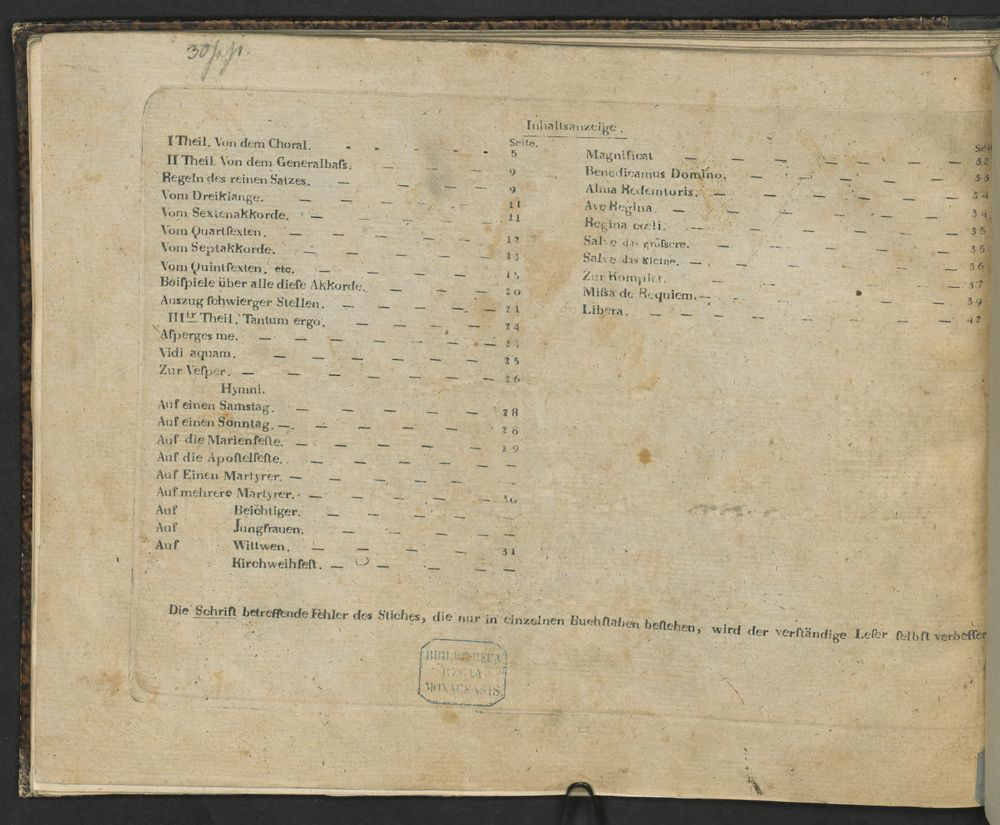 Inhaltsanzeige.
Seite.
I Theil. Von dem Choral. 5
II Theil. Von dem Generalbaſs. 9
Regeln des reinen Satzes. 9
Vom Dreiklange. 11
Vom Sextenakkorde. 11
Vom Quartſexten. 12
Vom Septakkorde. 13
Vom Quintſexten, etc. 15
Beiſpiele über alle dieſe Akkorde. 20
Auszug ſchwierger Stellen. 21
IIItr Theil. Tantum ergo. 24
Aſperges me.
Vidi aquam. 25
Zur Veſper. 26
Hymni.
Auf einen Samstag. 28
Auf einen Sonntag. 28
Auf die Marienfeſte. 29
Auf die Apoſtelfeſte. —
Auf Einen Martyrer. —
Auf mehrere Martyrer. 30
Auf Beichtiger. —
Auf Jungfrauen. —
Auf Wittwen. 31
Kirchweihfeſt. —
Magnificat 32
Benedicamus Domino. 33
Alma Redemtoris. 34
Ave Regina. 34
Regina cœli. 35
Salve das gröſsere. 35
Salve das kleine. 36
Zur Komplet. 37
Miſsa de Requiem. 39
Libera. 42
Die Schrift betreffende Fehler des Stiches, die nur in einzelnen Buchſtaben beſtehen, wird der verſtändige Leſer ſelbſt verbeſſer
BIBLIOTHECA
REGIA
MONACENSIS